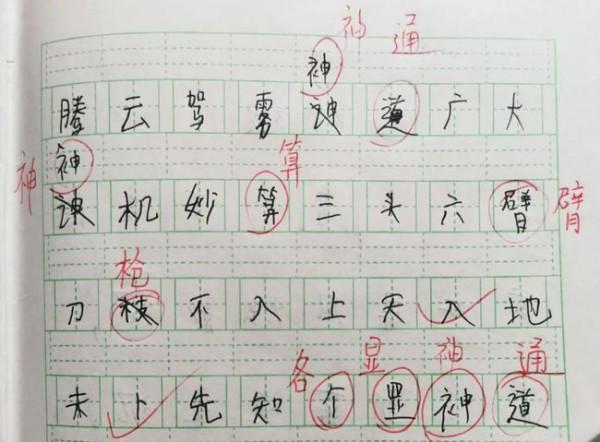 神通
神
腾云驾雾 道广大
神 算
神 机妙算三头六臂 臂
枪
刀枝不入上天入地
各显神通
未卜先知个显神道